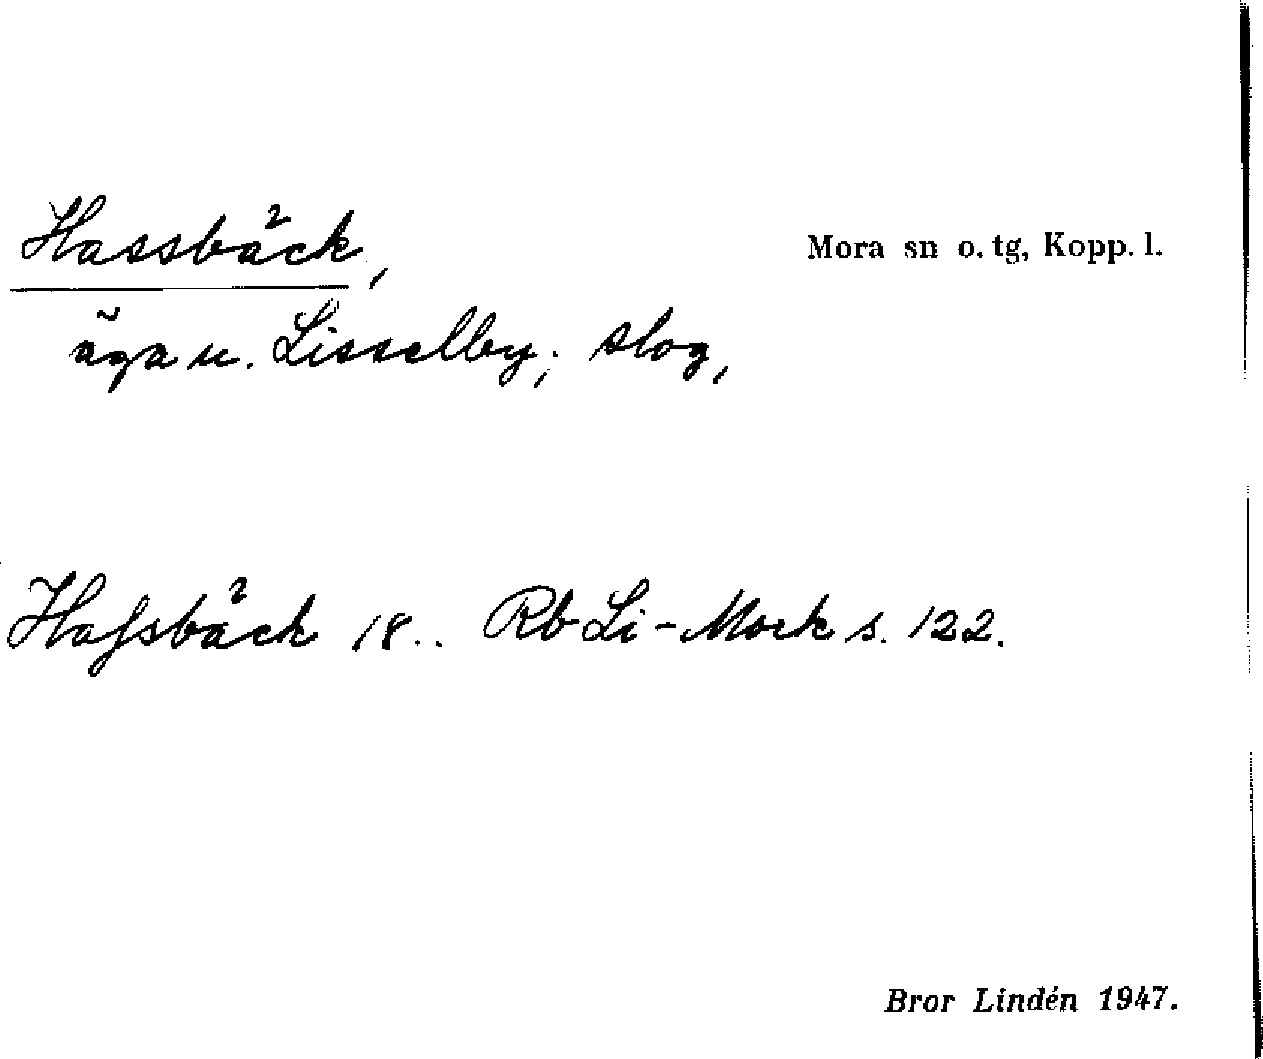 Hassbäck,
Mora sn o. tg, Kopp. l.
äga u. Lisselby; slog,
Haſsbäck 18.. Rb Li-Mork s. 122.
Bror Lindén 1947.